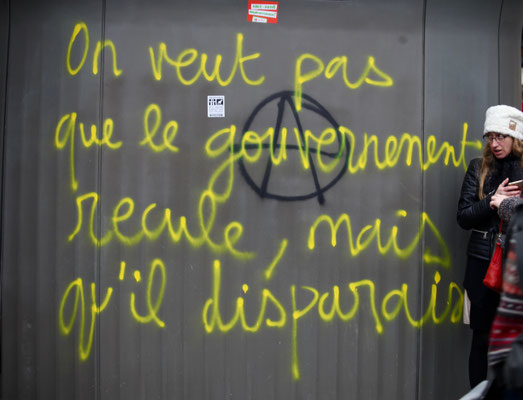 On veut pas
que le gouvernement
recule, mais
qu'il disparais